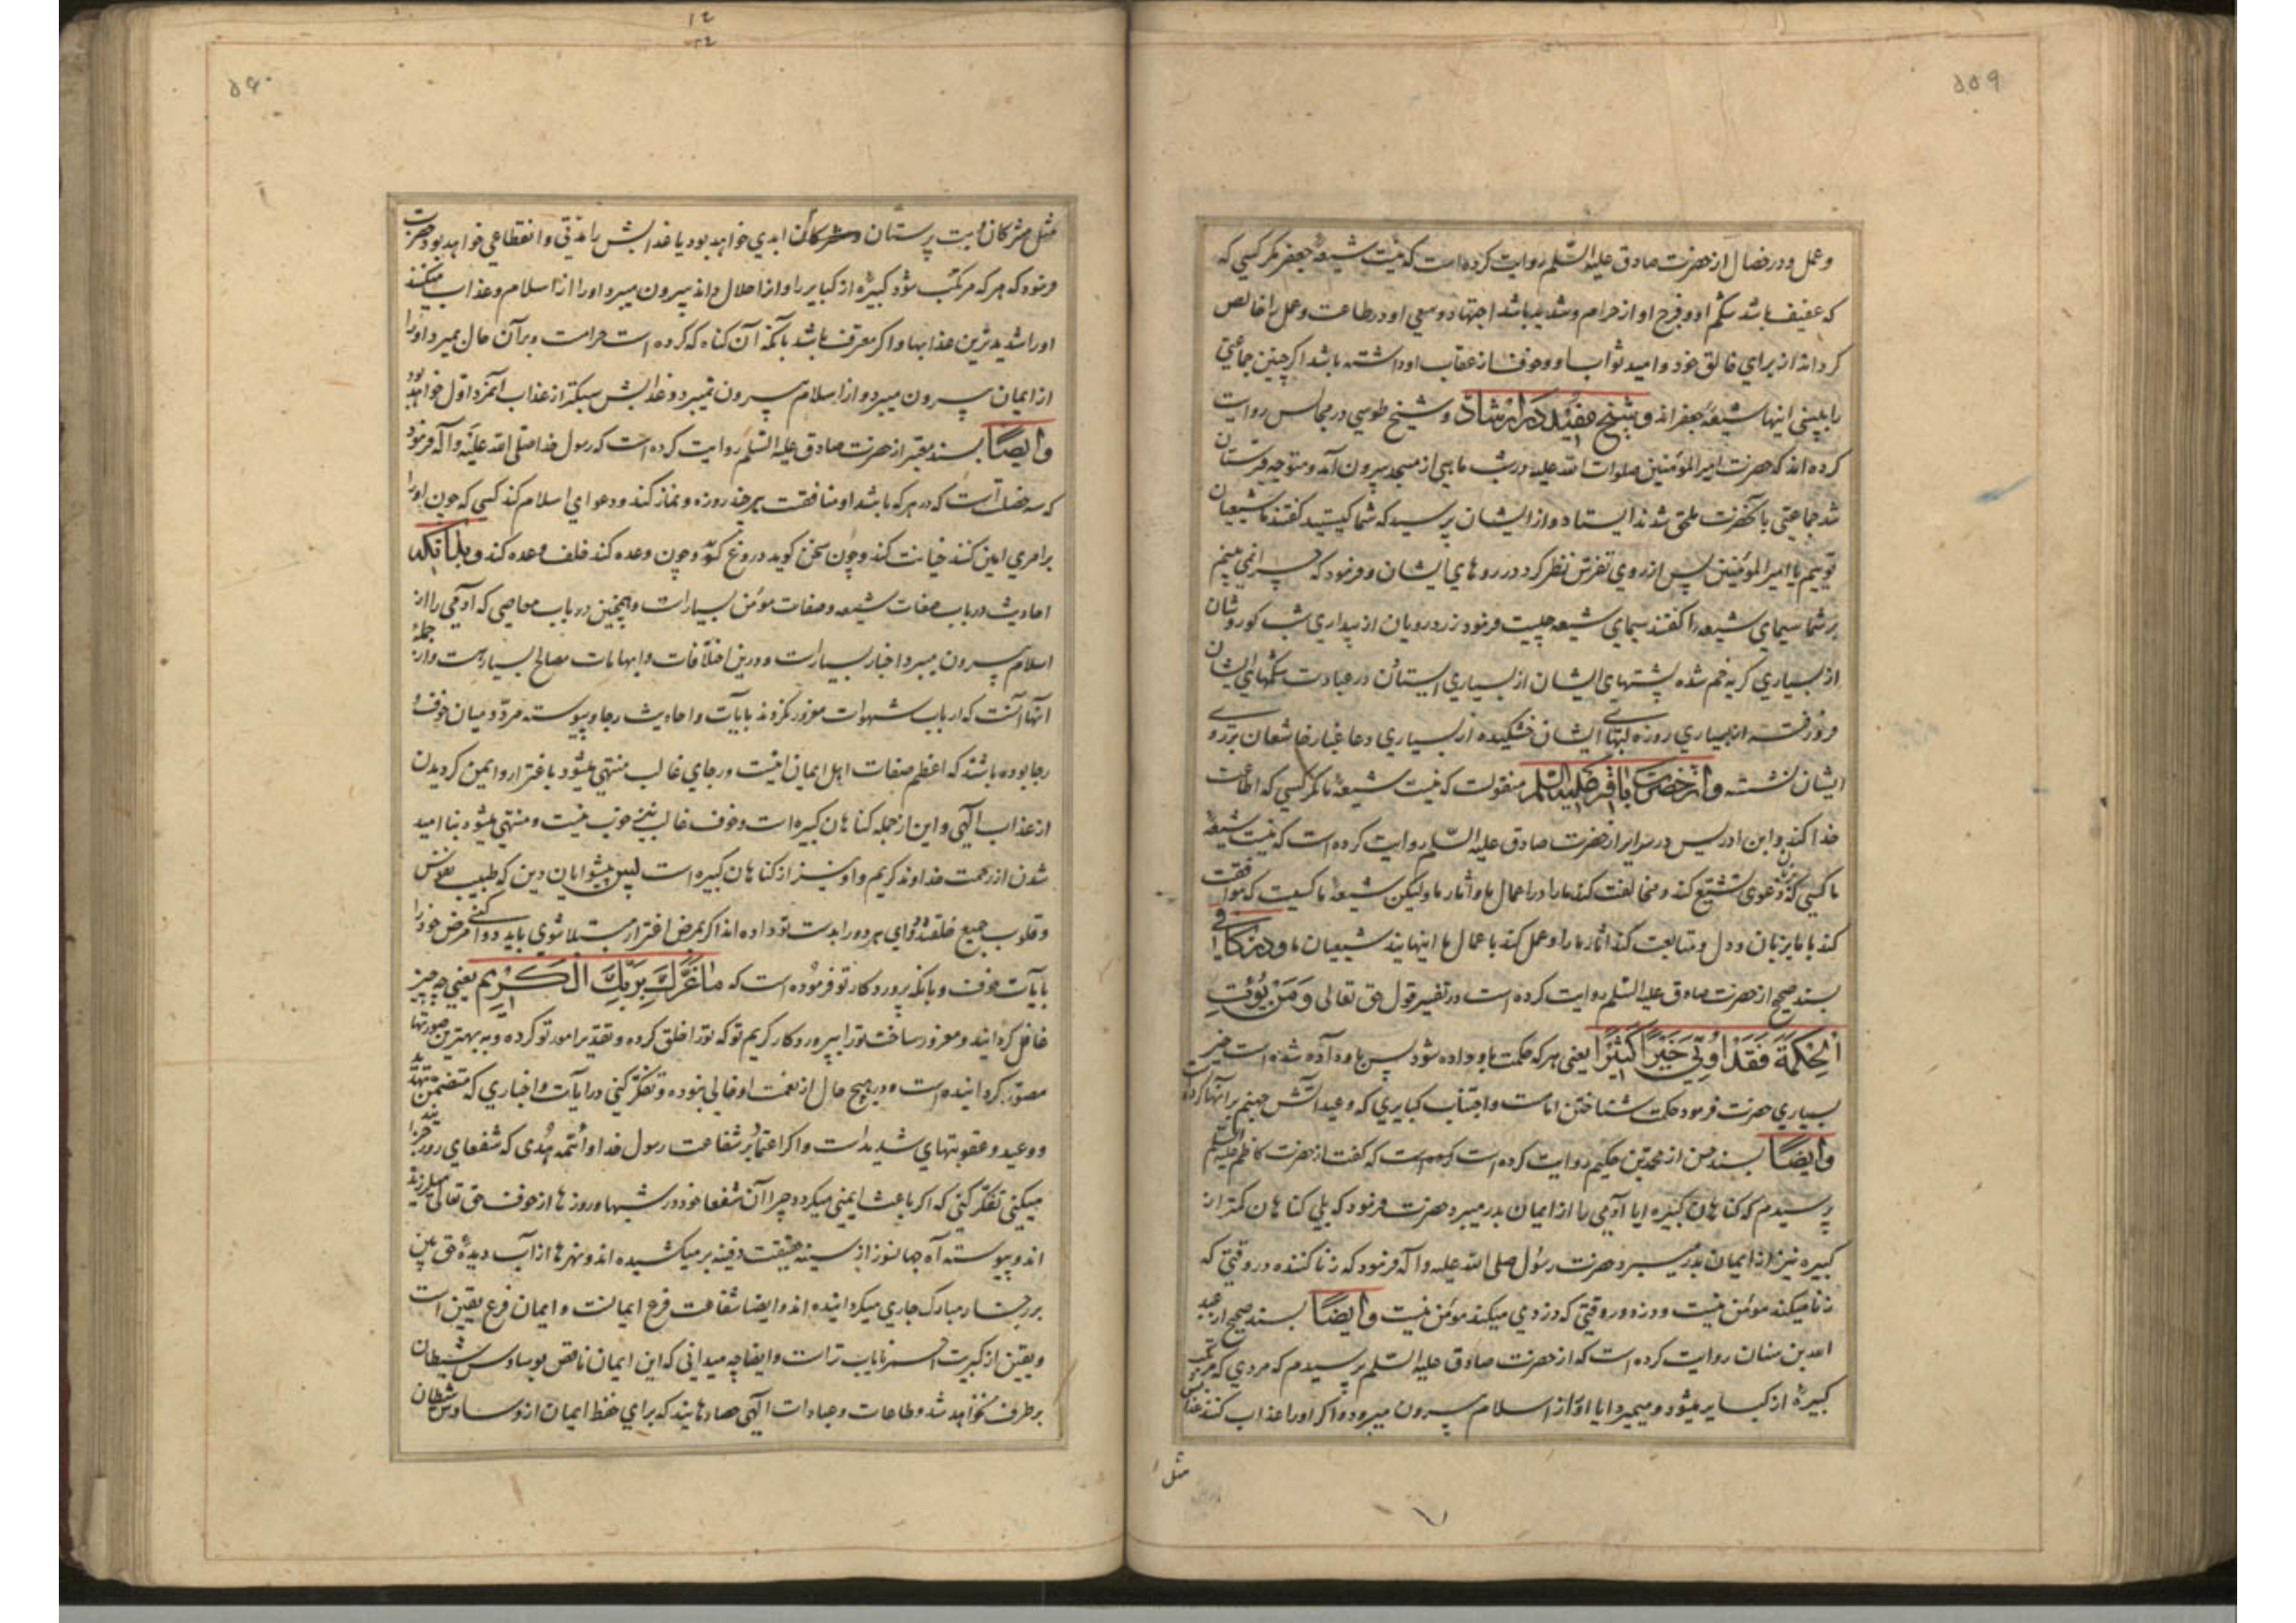 ۵۵۹
وعمل ودر خصال از حضرت صادق علیه السّلم روایت کرده است که نیست شیعهٔ جعفر مکر کسی که
که عفیف باشد شکم او و فرج او از حرام وشدید باشد اجتهاد وسعی او در طاعت وعمل را خالص
کرداند از برای خالق خود وامید ثواب او وخوف از عقاب او داشته باشد اکر چنین جماعتی
را ببینی اینها شیعهٔ جعفراند وشیخ مفید در ارشاد وشیخ طوسی در مجالس روایت
کرده اند که حضرت امیرالمؤمنین صلوات الله علیه در شب ماهی از مسجد بیرون آمد ومتوجه قبرستان
شد جماعتی بآنحضرت ملحق شدند ایستاد واز ایشان پرسید که شما کیستید کفتند ما شیعیان
توییم یا امیرالمؤمنین پس از روی تفرّس نظر کرد در روهای ایشان وفرمود که چرا نمی بینم
بر شما سیمای شیعه را کفتند سیمای شیعه چیست فرمود زرد رویان از بیداری شب کوروشان
از بسیاری کریه خم شده پشتهای ایشان از بسیاری ایستادن در عبادت شکمهای ایشان
فرو رفته از بسیاری روزه لبهای ایشان خشکیده از بسیاری دعا غبار خاشعان بر رو
ایشان نشسته واز حضرت باقر علیه السلم منقولست که نیست شیعهٔ ما مکر کسی که اطاعت
خدا کند وابن ادریس در سرایر از حضرت صادق علیه السّلم روایت کرده است که نیست شیعهٔ
ما کسی که بزبان دعوی تشیّع کند ومخالفت کند ما را در اعمال ما وآثار ما ولیکن شیعهٔ ما کسیست که موافقت
کند با ما بزبان ودل ومتابعت کند آثار ما را وعمل کند باعمال ما اینهایند شیعیان ما ودر کافی
بسند صحیح از حضرت صادق علیه السّلم روایت کرده است در تفسیر قول حق تعالی وَمَنْ یُؤْتَ
الْحِکْمَةَ فَقَدْ اُوتِیَ خَیْرًا کَثِیْرًا یعنی هر که حکمت باو داده شود پس باو داده شده است خیر
بسیاری حضرت فرمود حکمت شناختن امامت واجتناب کبایری که وعید آتش جهنم بر آنها کرده
وایضًا بسند حسن از محمد بن حکیم روایت کرده است که کفت از حضرت کاظم علیه السّلم
پرسیدم که کناهان کبیره ایا آدمی را از ایمان بدر میبرد حضرت فرمود که بلی کناهان کمتر از
کبیره نیز از ایمان بدر میبرد حضرت رسول صلی الله علیه وآله فرمود که زنا کننده در وقتی که
زنا میکند مؤمن نیست ودزد در وقتی که دزدی میکند مؤمن نیست وایضًا بسند صحیح از عبد
الله بن سنان روایت کرده است که از حضرت صادق علیه السّلم پرسیدم که مردی که مرتکب
کبیرهٔ از کبایر میشود ومیمیرد ایا او را از اسلام بیرون میبرد واکر او را عذاب کنند عذابش
مثل
۵۶۰
مثل مشرکان وبت پرستان ابدی خواهد بود یا عذابش را مدّتی وانقطاعی خواهد بود حضرت
فرمود که هر که مرتکب شود کبیرهٔ از کبایر را واو را حلال داند بیرون میبرد او را از اسلام وعذاب میکنند
او را شدیدترین عذابها واکر معترف باشد بآنکه آن کناه که کرده است حرامست وبر آن حال بمیرد او را
از ایمان بیرون میبرد واز اسلام بیرون نمیبرد وعذابش سبکتر از عذاب آنمرد اول خواهد بود
وایضًا بسند معتبر از حضرت صادق علیه السّلم روایت کرده است که رسول خدا صلّی الله علیه وآله فرمود
که سه خصلت است که در هر که باشد او منافقست هرچند روزه ونماز کند ودعوای اسلام کند کسی که چون او را
بر امری امین کنند خیانت کند وچون سخن کوید دروغ کوید وچون وعده کند خلف وعده کند وبدانکه
احادیث در باب صفات شیعه وصفات مؤمن بسیار است وهمچنین در باب معاصی که آدمی را از
اسلام بیرون میبرد اخبار بسیار است ودرین اختلافات وابهامات مصالح بسیار هست واز جملهٔ
آنها آنست که ارباب شهوات مغرور نکردند بآیات واحادیث رجا وپیوسته مردّد میان خوف و
رجا بوده باشند که اعظم صفات اهل ایمان اینست ورجای غالب منتهی میشود باغترار وایمن کردیدن
از عذاب الهی واین از جمله کناهان کبیره است وخوف غالب نیز خوب نیست ومنتهی میشود بنا امید
شدن از رحمت خداوند کریم واو نیز از کناهان کبیره است پس پیشوایان دین که طبیب نفوس
وقلوب جمیع خلقند دوای هر دو را بدست تو داده اند اکر بمرض اغترار مبتلا شوی باید دوا کنی مرض خود را
بآیات خوف وبآنکه پروردکار تو فرموده است که مَا غَرَّکَ بِرَبِّکَ الْکَرِیْمِ یعنی چه چیز
غافل کردانید ومغرور ساخت تو را بپروردکار کریم تو که تو را خلق کرده وتقدیر امور تو کرده وبه بهترین صورتها
مصوّر کردانیده است ودر هیچ حال از نعمت او خالی نبوده وتفکّر کنی در آیات واخباری که متضمن تهدید
ووعید وعقوبتهای شدید است واکر اعتماد بر شفاعت رسول خدا وائمه هُدی که شفعای روز جزایند
میکنی تفکّر کنی که اکر باعث ایمنی میکردد چرا آن شفعا خود در شبها وروزها از خوف حق تعالی میلرزیده
اند وپیوسته آه جهانسوز از سینه حقیقت دفینه بر میکشیده اند ونهرها از آب دیدهٔ حق بین
بر رخسار مبارک جاری میکردانیده اند وایضا شفاعت فرع ایمانست وایمان فرع یقین است
ویقین از کبریت احمر نایاب تر است وایضا چه میدانی که این ایمان ناقص بوساوس شیطان
برطرف نخواهد شد وطاعات وعبادات الهی حصارهایند که برای حفظ ایمان از وساوس شیطان